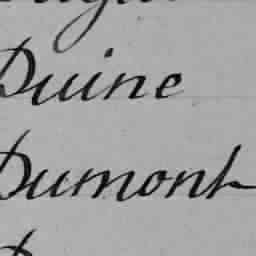 Duine
Dumont